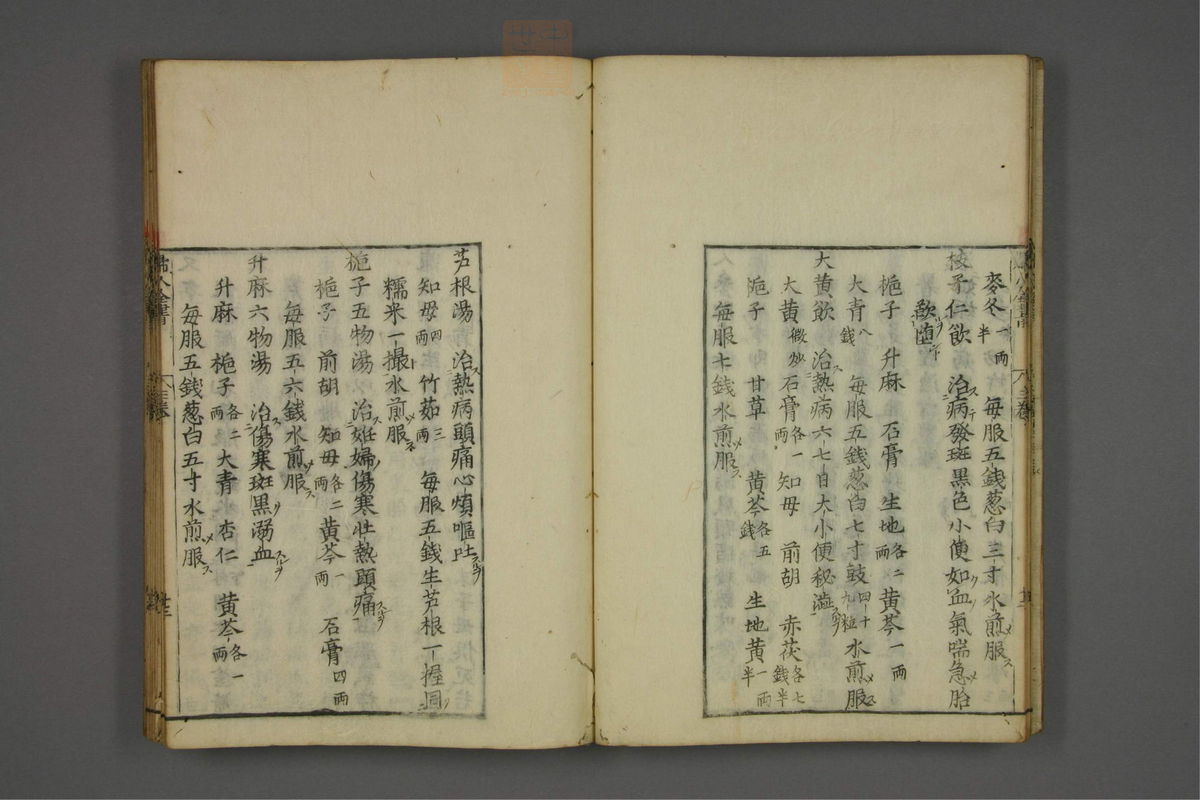 麥冬一兩半 每服五錢葱白三寸水煎服
梔子仁飲 治病發斑黑色小便如血氣喘急胎
欲墮
梔子 升麻 石膏 生地各二兩黄芩一兩
大青八錢 每服五錢葱白七寸豉四十九粒水煎服
大黄飲 治熱病六七日大小便秘澁
大黄微炒石膏各一兩 知母 前胡 赤茯各七錢半
梔子 甘草 黄芩各五錢 生地黄一兩半
每服七錢水煎服
芦根湯 治熱病頭痛心煩嘔吐
知母四兩 竹茹三兩 每服五錢生芦根一握
糯米一撮水煎服
梔子五物湯 治妊婦傷寒壯熱頭痛
梔子 前胡 知母各二兩 黄芩一兩 石膏四兩
每服五六錢水煎服
升麻六物湯 治傷寒斑黑溺血
升麻 梔子各二兩 大青 杏仁 黄芩各一兩
每服五錢葱白五寸水煎服